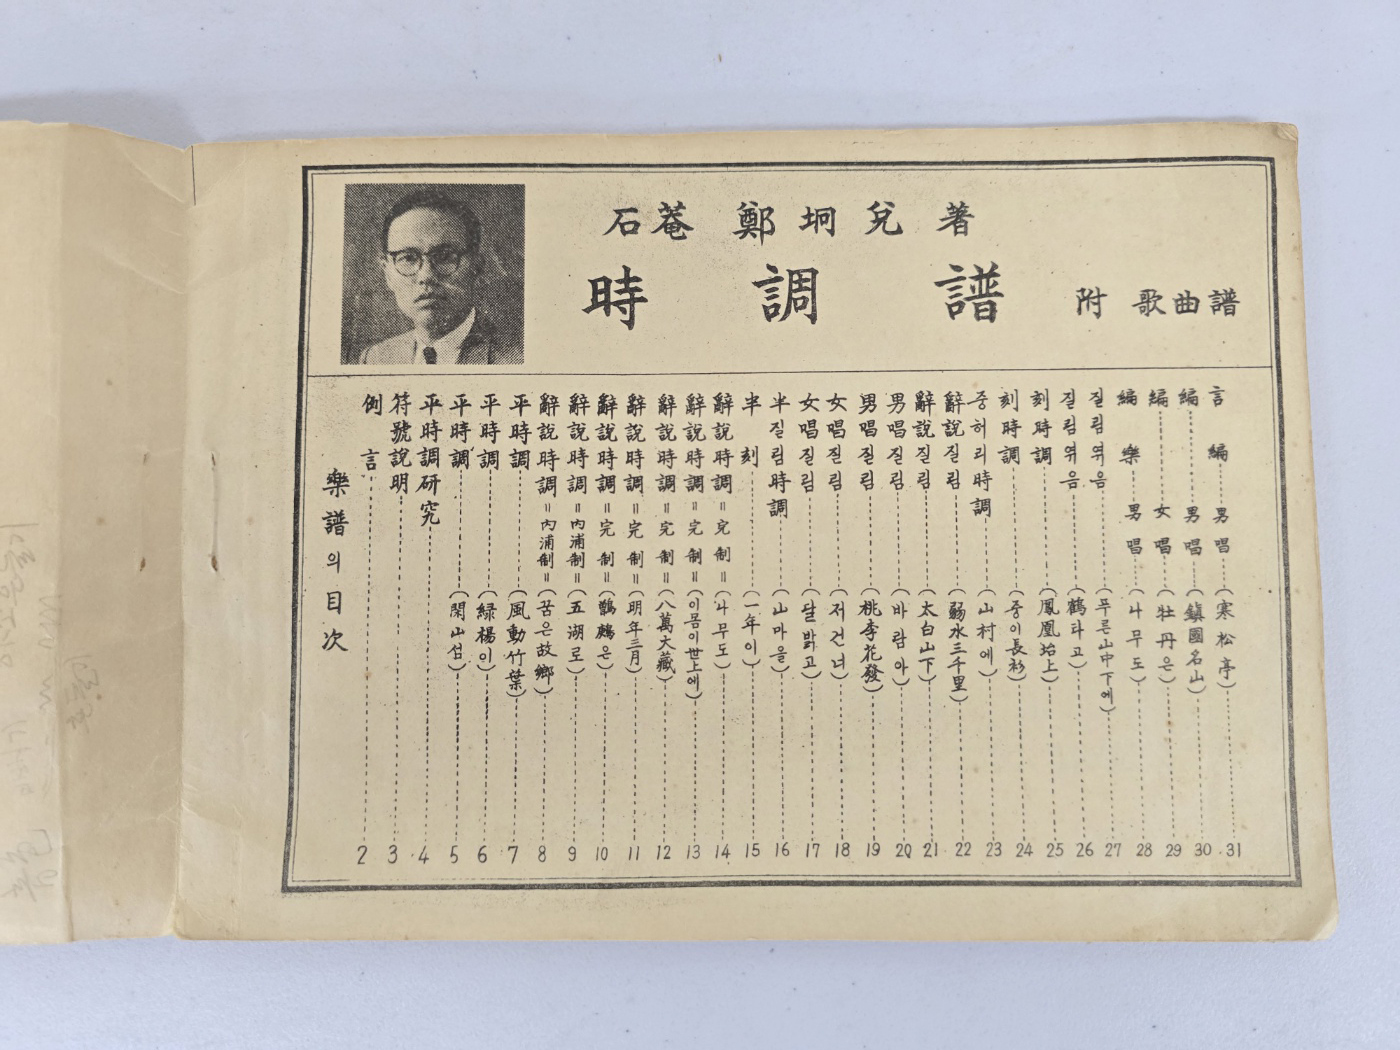 石菴 鄭坰兌 著
時調譜 附 歌曲譜
樂譜의目次
例言 2
符號說明 3
平時調研究 4
平時調 (閑山섬) 5
平時調 (綠楊이) 6
平時調 (風動竹葉) 7
辭說時調=內浦制= (꿈은故鄉) 8
辭說時調=內浦制= (五湖로) 9
辭說時調=完制= (鸚鵡은) 10
辭說時調=完制= (明年三月) 11
辭說時調=完制= (八萬大藏) 12
辭說時調=完制= (이몸이世上에) 13
辭說時調=完制= (나무도) 14
半刻 (一年이) 15
半질림時調 (山마을) 16
女唱질림 (달밝고) 17
女唱질림 (저건너) 18
男唱질림 (桃李花發) 19
男唱질림 (바람아) 20
辭說질림 (太白山下) 21
辭說질림 (弱水三千里) 22
중허리時調 (山村에) 23
刻時調 (중이長衫) 24
刻時調 (鳳凰坮上) 25
질림엮음 (鶴타고) 26
질림엮음 (푸른山中下에) 27
編樂 男唱 (나무도) 28
編 女唱 (牡丹은) 29
編 男唱 (鎭國名山) 30
言編 男唱 (寒松亭) 31